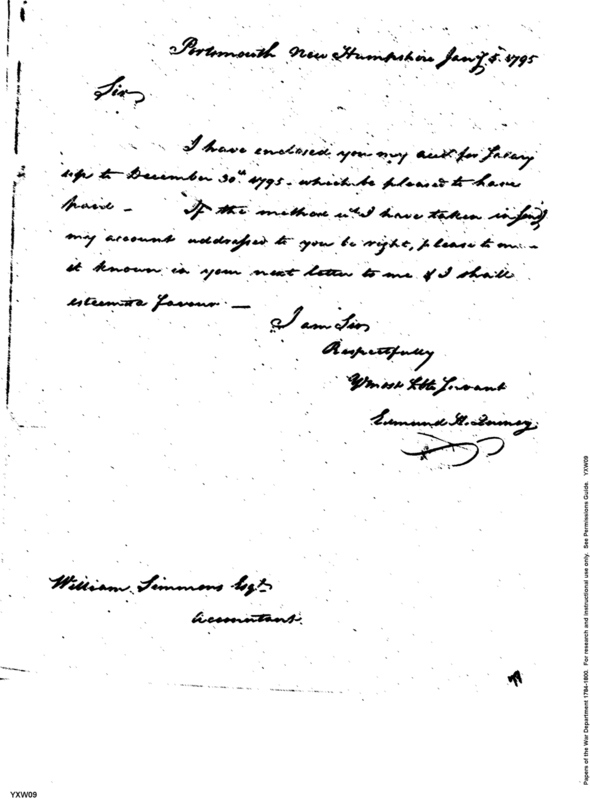 Portsmouth New Hampshire Jany 5. 1795
Sir
I have enclosed you my acct for Salary
up to December 30th 1795. which be pleased to have
paid - If the method wh I have taken in
my account addressed to you be right, please to
it known in your next letter to me & I shall
esteem a favour. —
I am Sir
Respectfully
Yr most Hble Servant
Edmund H. Quincy.
William Simmons Esqr.
Accountant.
Papers of the War Department 1784-1800. For research and instructional use only. See Permissions Guide. YXW09
YXW09